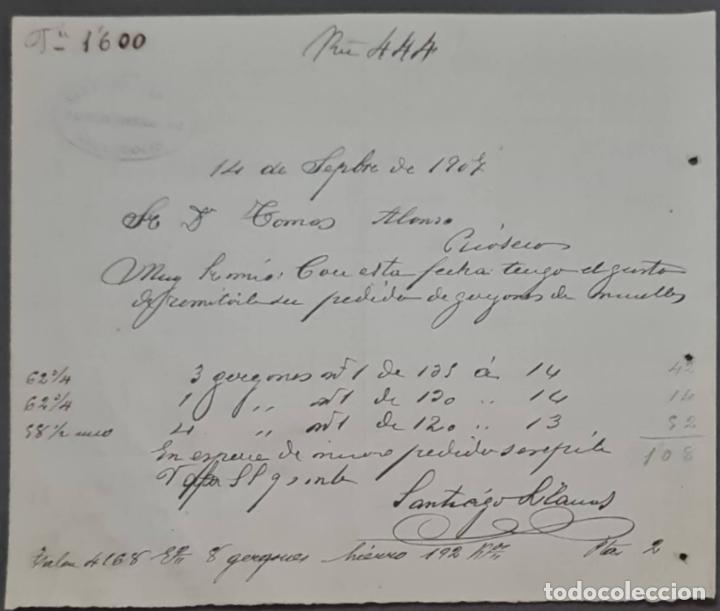 1600
444
14 de Sepbre de 1907
Sr Dn Tomas Alonso
Rioseco
Muy Sr mio: Con esta fecha tengo el gusto
de remitirle su pedido de gergones de muelles
62 3/4 3 gergones nº 1 de 135 á 14 42
62 3/4 1 " nº 1 de 130 " 14 14
58 1/2 4 " nº 1 de 120 " 13 52
En espera de nuevo pedido se repite 108
S S q s m b
Santiago Llanos
8 gergones hierro 192 2
todocoleccion
todocoleccion.net